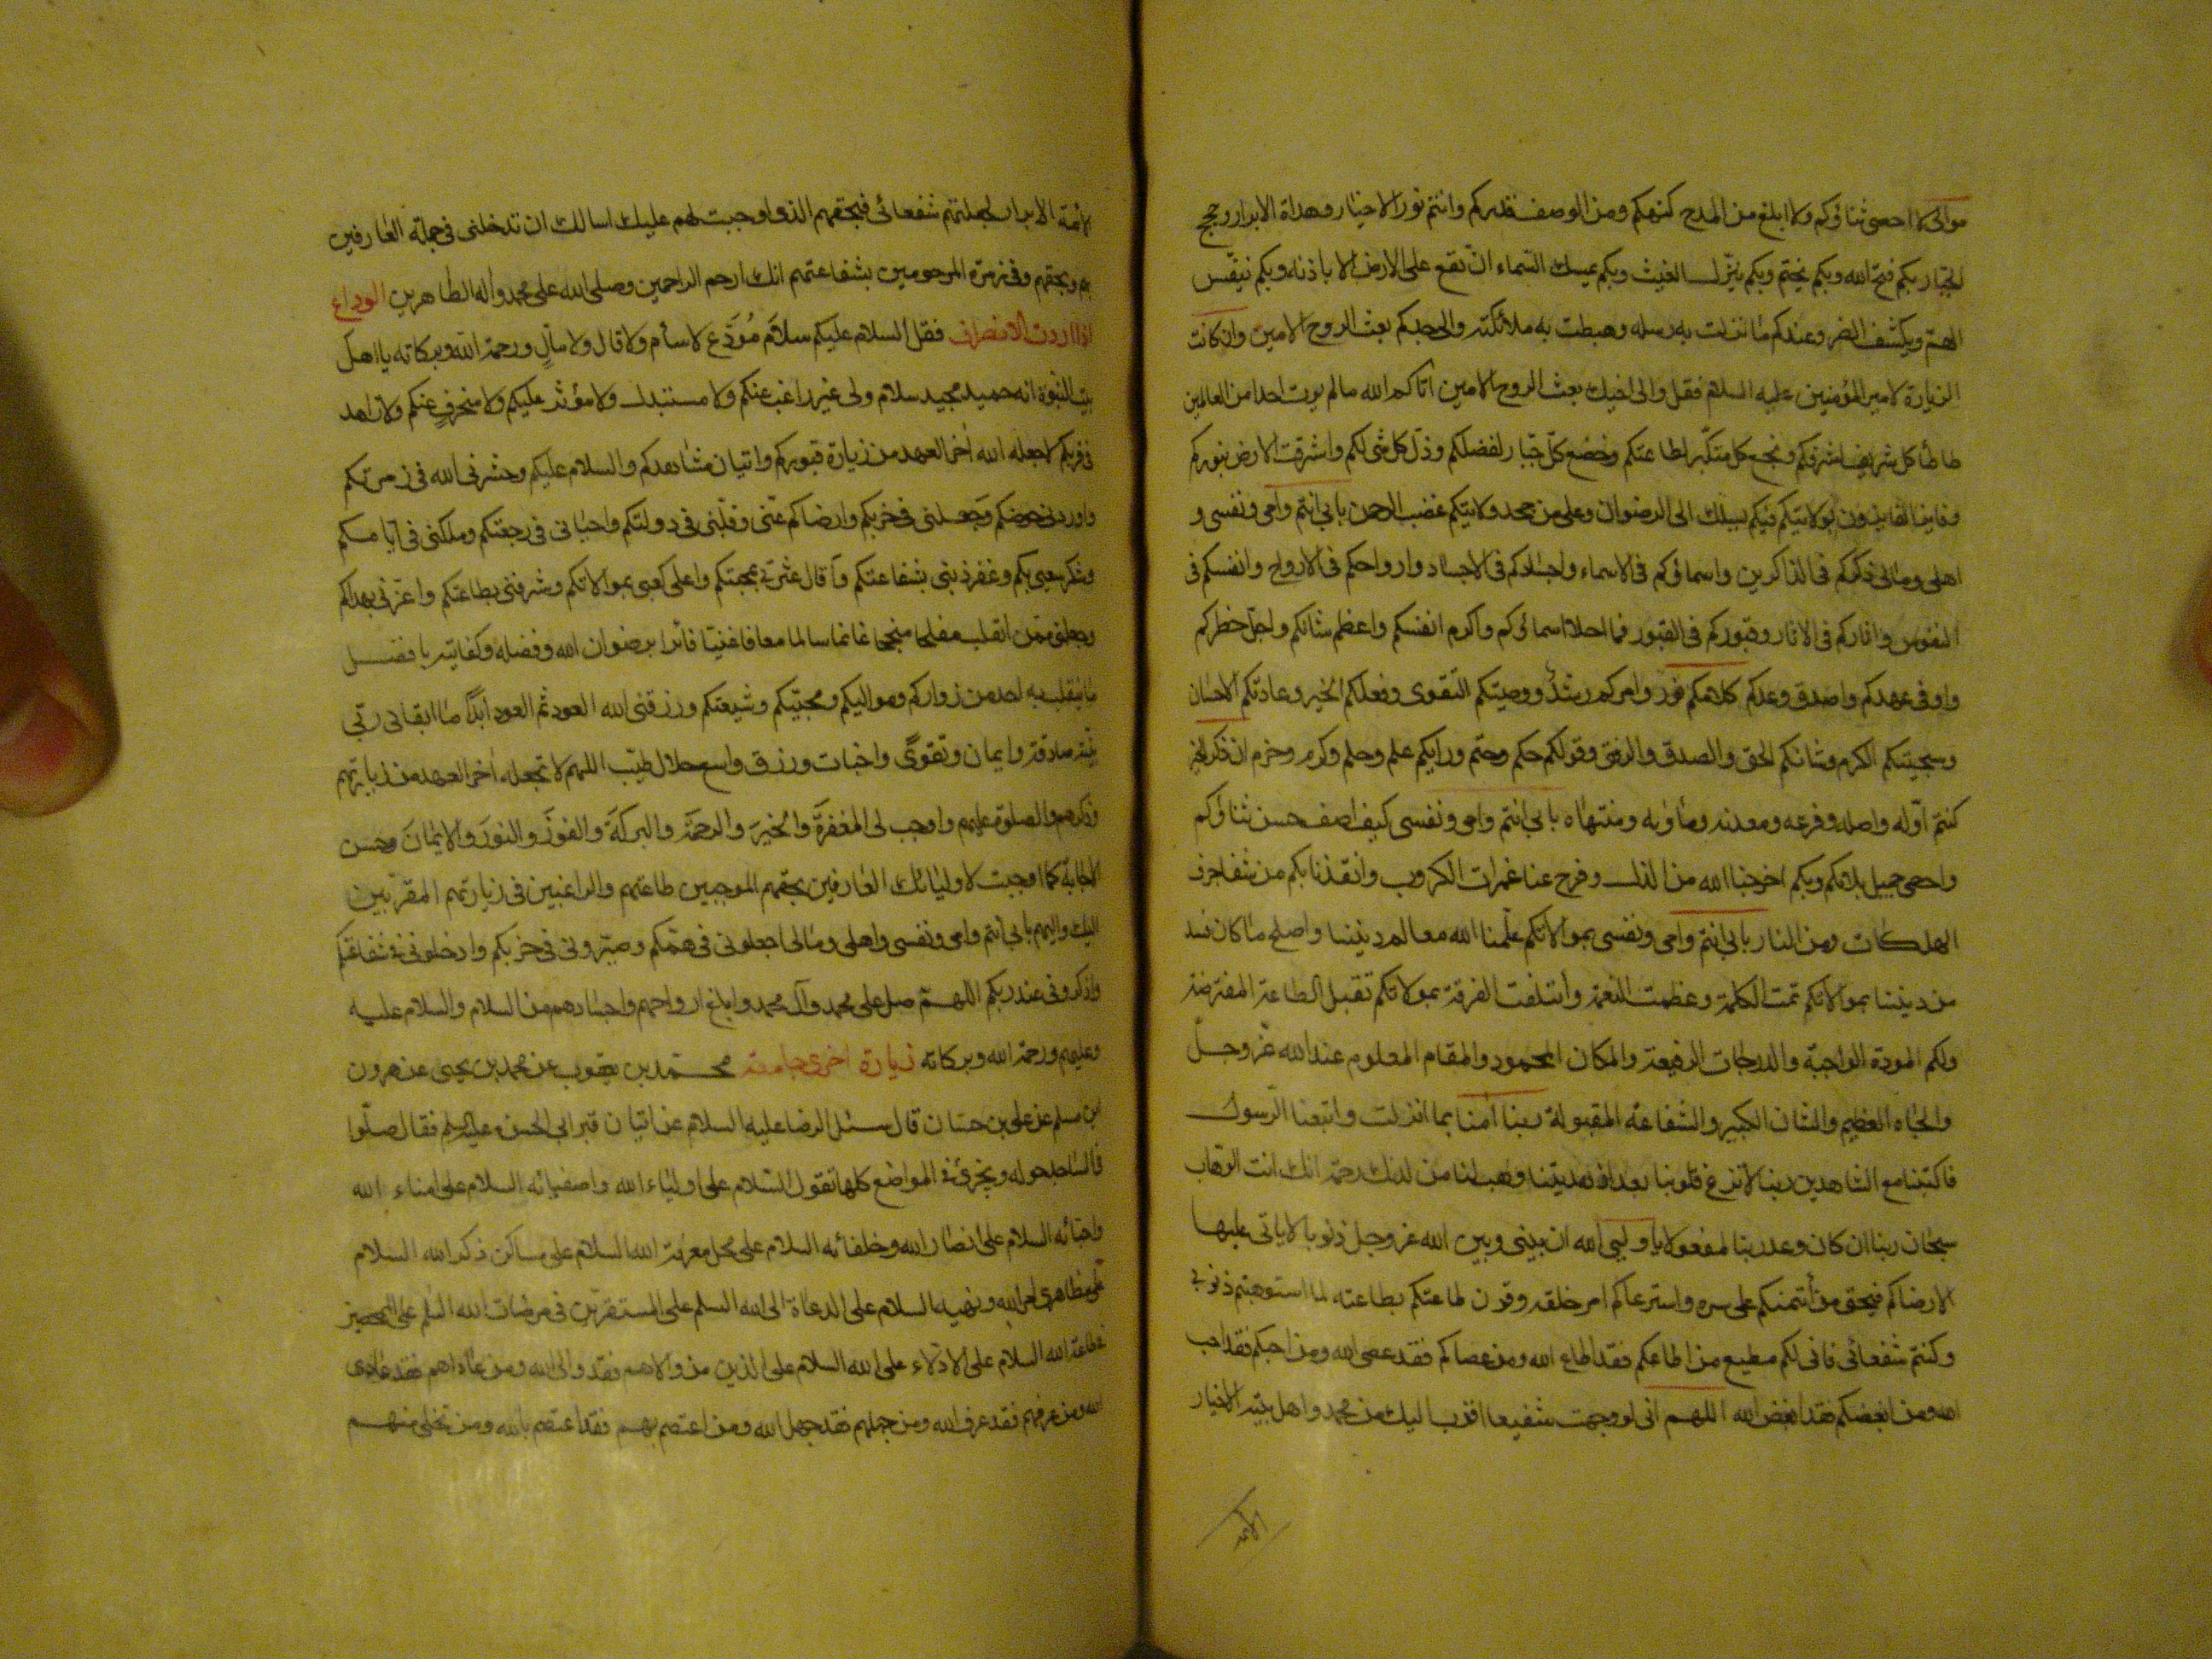 موالى لا احصى ثناؤكم ولا ابلغ من المدح كنهكم ومن الوصف قدركم وانتم نور الاخيار وهداة الابرار وحجج
الجبار بكم فتح الله وبكم يختم وبكم ينزل الغيث وبكم يمسك السماء ان تقع على الارض الا باذنه وبكم ينفس
الهم ويكشف الضر وعندكم ما نزلت به رسله وهبطت به ملائكته والى جدكم بعث الروح الامين وان كانت
الزيارة لامير المؤمنين عليه السلام فقل والى اخيك بعث الروح الامين اتاكم الله ما لم يوت احدا من العالمين
طأطأ كل شريف لشرفكم ونجع كل متكبر لطاعتكم وخضع كل جبار لفضلكم وذل كل شئ لكم واشرقت الارض بنوركم
وفاز الفايزون بولايتكم فبكم يسلك الى الرضوان وعلى من جحد ولايتكم غضب الرحمن بابى انتم وامى ونفسى و
اهلى ومالى ذكركم فى الذاكرين واسماؤكم فى الاسماء واجسادكم فى الاجساد وارواحكم فى الارواح وانفسكم فى
النفوس واثاركم فى الاثار وقبوركم فى القبور فما احلا اسمائكم واكرم انفسكم واعظم شانكم واجل خطركم
واوفى عهدكم واصدق وعدكم كلامكم نور وامركم رشد ووصيتكم التقوى وفعلكم الخير وعادتكم الاحسان
وسجيتكم الكرم وشانكم الحق والصدق والرفق وقولكم حكم وحتم ورايكم علم وحلم وكرم وحزم ان ذكر الخير
كنتم اوله واصله وفرعه ومعدنه وماويه ومنتهاه بابى انتم وامى ونفسى كيف اصف حسن ثناؤكم
واحصى جميل بلائكم وبكم اخرجنا الله من الذل وفرج عنا غمرات الكروب وانقذنا بكم من شفا جرف
الهلكات ومن النار بابى انتم وامى ونفسى بموالاتكم علمنا الله معالم ديننا واصلح ما كان فسد
من ديننا بموالاتكم تمت الكلمة وعظمت النعمة وائتلفت الفرقة بمولاتكم تقبل الطاعة المفترضة
ولكم المودة الواجبة والدرجات الرفيعة والمكان المحمود والمقام المعلوم عند الله عز وجل
والجاه العظيم والشان الكبير والشفاعة المقبولة ربنا امنا بما انزلت واتبعنا الرسول
فاكتبنا مع الشاهدين ربنا لا تزغ قلوبنا بعد اذ هديتنا وهب لنا من لدنك رحمة انك انت الوهاب
سبحان ربنا ان كان وعد ربنا لمفعولا يا ولى الله ان بينى وبين الله عز وجل ذنوبا لا ياتى عليها
الا رضاكم فبحق من ائتمنكم على سره واسترعاكم امر خلقه وقرن طاعتكم بطاعته لما استوهبتم ذنوبى
وكنتم شفعائى فانى لكم مطيع من اطاعكم فقد اطاع الله ومن عصاكم فقد عصى الله ومن احبكم فقد احب
الله ومن ابغضكم فقد ابغض الله اللهم انى لو وجدت شفيعا اقرب اليك من محمد واهل بيته الاخيار
الائمة
الائمة الابرار لجعلتهم شفعائى فبحقهم الذى اوجبت لهم عليك اسالك ان تدخلنى فى جملة العارفين
بهم وبحقهم وفى زمرة المرحومين بشفاعتهم انك ارحم الراحمين وصلى الله على محمد واله الطاهرين الوداع
اذا اردت الانصراف فقل السلام عليكم سلام مودع لا سأم ولا قال ولا مال ورحمة الله وبركاته يا اهل
بيت النبوة انه حميد مجيد سلام ولى غير راغب عنكم ولا مستبدل ولا مؤثر عليكم ولا منحرف عنكم ولا زاهد
فى قربكم لا جعله الله اخر العهد من زيارة قبوركم واتيان مشاهدكم والسلام عليكم وحشرنى الله فى زمرتكم
واوردنى حوضكم وجعلنى فى حزبكم وارضاكم عنى وقلبنى فى دولتكم واحيانى فى رجعتكم وملكنى فى ايامكم
وشكر سعيى بكم وغفر ذنبى بشفاعتكم واقال عثرتى بمحبتكم واعلى كعبى بموالاتكم وشرفنى بطاعتكم واعزنى بهداكم
وجعلنى ممن انقلب مفلحا منجحا غانما سالما معافا غنيا فائزا برضوان الله وفضله وكفايته بافضل
ما ينقلب به احد من زواركم ومواليكم ومحبيكم وشيعتكم ورزقنى الله العود ثم العود ابدا ما ابقانى ربى
بنية صادقة وايمان وتقوى واخبات ورزق واسع حلال طيب اللهم لا تجعله اخر العهد من زيارتهم
وذكرهم والصلوة عليهم واوجب لى المغفرة والخير والرحمة والبركة والفوز والنور والايمان وحسن
الاجابة كما اوجبت لاوليائك العارفين بحقهم الموجبين طاعتهم والراغبين فى زيارتهم المقربين
اليك واليهم بابى انتم وامى ونفسى واهلى ومالى اجعلونى فى همكم وصيرونى فى حزبكم وادخلونى فى شفاعتكم
واذكرونى عند ربكم اللهم صل على محمد وآل محمد وابلغ ارواحهم واجسادهم من السلام والسلام عليه
وعليهم ورحمة الله وبركاته زيارة اخرى جامعة محمد بن يعقوب عن محمد بن يحيى عن هرون
ابن مسلم عن على بن حسان قال سئل الرضا عليه السلام عن اتيان قبر ابى الحسن عليه السلم فقال صلوا
فى المساجد حوله ويجزئ فى المواضع كلها ان تقول السلام على اولياء الله واصفيائه السلام على امناء الله
واحبائه السلام على انصار الله وخلفائه السلام على محل معرفة الله السلام على مساكن ذكر الله السلام
على مظاهرى امر الله ونهيه السلام على الدعاة الى الله السلم على المستقرين فى مرضات الله السلم على الممحصين
فى طاعة الله السلام على الادلاء على الله السلام على الذين من والاهم فقد والى الله ومن عاداهم فقد عادى
الله ومن عرفهم فقد عرف الله ومن جهلهم فقد جهل الله ومن اعتصم بهم فقد اعتصم بالله ومن تخلى منهم